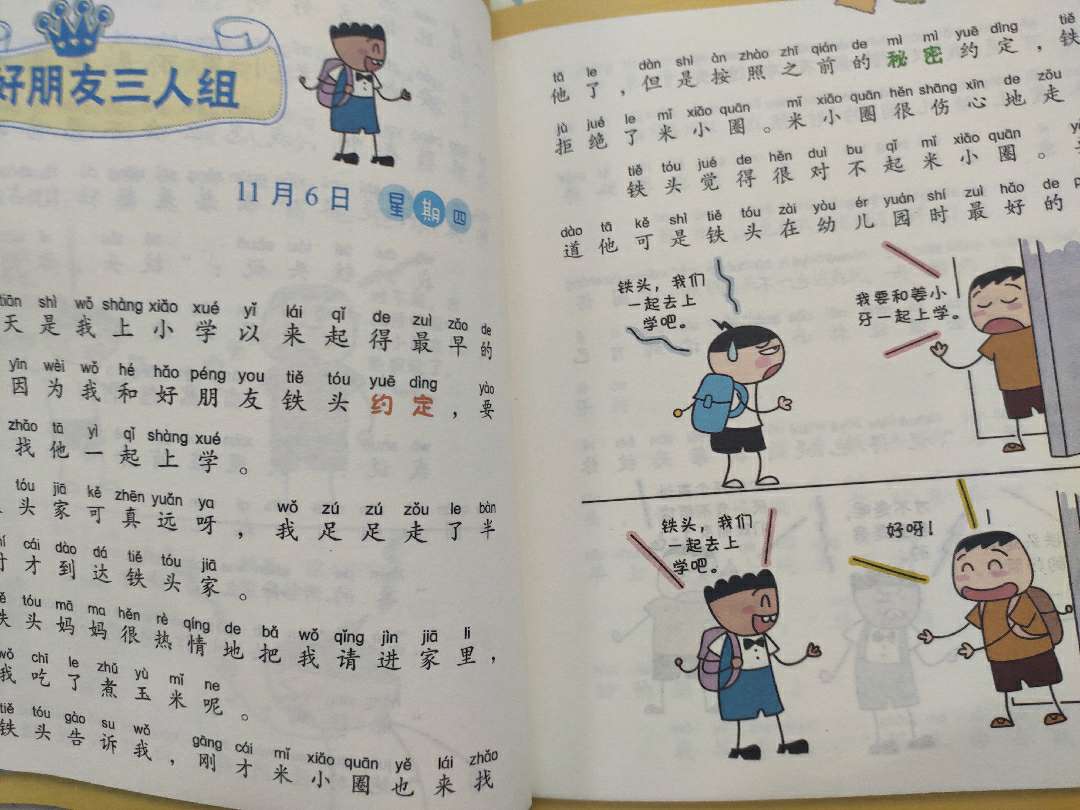 好朋友三人组
11月6日 星期四
tiān shì wǒ shàng xiǎo xué yǐ lái qǐ de zuì zǎo de
天是我上小学以来起得最早的
yīn wèi wǒ hé hǎo péng you tiě tóu yuē dìng yào
因为我和好朋友铁头约定，要
zhǎo tā yì qǐ shàng xué
找他一起上学。
tóu jiā kě zhēn yuǎn ya wǒ zú zú zǒu le bàn
头家可真远呀，我足足走了半
cái dào dá tiě tóu jiā
时才到达铁头家。
tóu mā ma hěn rè qíng de bǎ wǒ qǐng jìn jiā li
铁头妈妈很热情地把我请进家里，
wǒ chī le zhǔ yù mǐ ne
我吃了煮玉米呢。
tiě tóu gào su wǒ gāng cái mǐ xiǎo quān yě lái zhǎo
铁头告诉我，刚才米小圈也来找
tā le dàn shì àn zhào zhī qián de mì mì yuē dìng tiě
他了，但是按照之前的秘密约定，铁
jù jué le mǐ xiǎo quān mǐ xiǎo quān hěn shāng xīn de zǒu
拒绝了米小圈。米小圈很伤心地走
tiě tóu jué de hěn duì bu qǐ mǐ xiǎo quān
铁头觉得很对不起米小圈。
dào tā kě shì tiě tóu zài yòu ér yuán shí zuì hǎo de
道他可是铁头在幼儿园时最好的
铁头，我们
一起去上
学吧。
我要和姜小
牙一起上学。
铁头，我们
一起去上
学吧。
好呀！